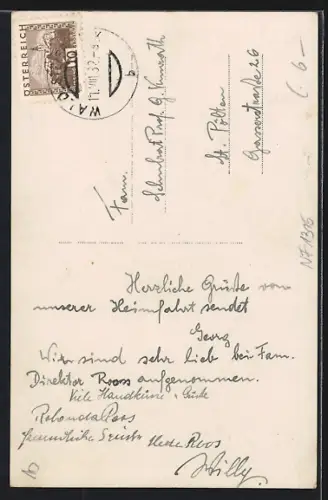 ÖSTERREICH
10
11. VIII. 32
Fam.
Schulrat Prof. G.
St. Pölten
Gasserstraße 26
6 -
NF 1316
Herzliche Grüße von
unserer Heimfahrt sendet
Georg
Wir sind sehr lieb bei Fam.
Direktor Roos aufgenommen.
Viele Handküsse
Roos
freundliche Grüße
Roos
Willy.